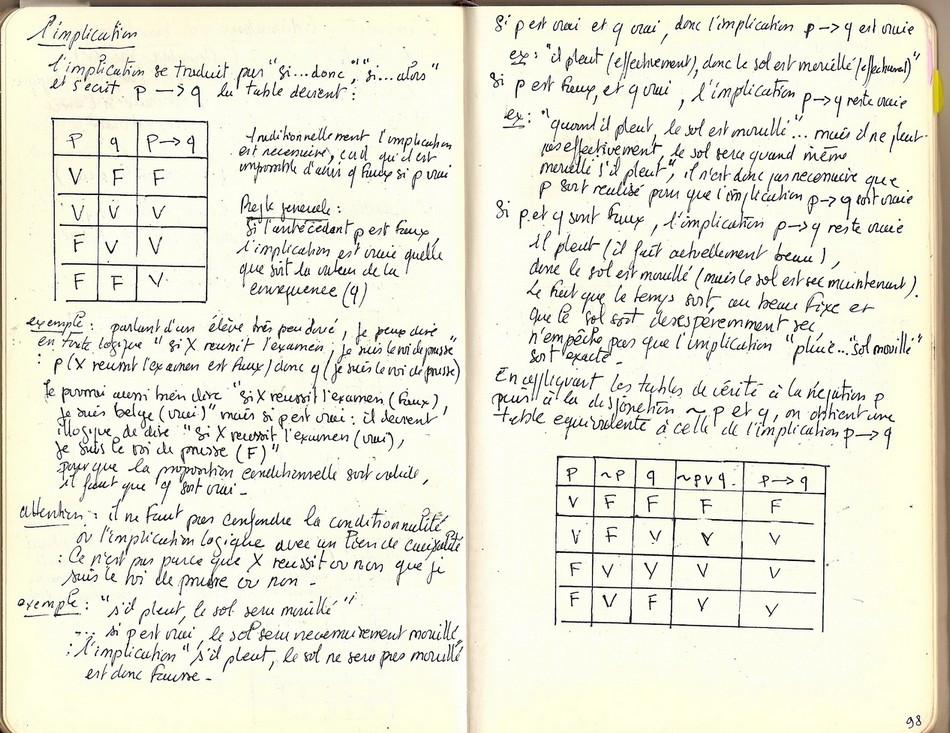 l'implication
l'implication se traduit par "si...donc", "si...alors"
et s'écrit p → q la table devient :
p q p→q
V F F
V V V
F V V
F F V
traditionnellement l'implication
est nécessaire, càd qu'il est
impossible d'avoir q faux si p vrai
Règle générale :
Si l'antécédant p est faux,
l'implication est vraie quelle
que soit la valeur de la
conséquence (q)
exemple : parlant d'un élève très peu doué, je peux dire
en toute logique "si X réussit l'examen, je suis le roi de prusse"
: p (X réussit l'examen est faux) donc q (je suis le roi de prusse)
Je pourrai aussi bien dire "si X réussit l'examen (faux)
je suis belge (vrai)" mais si p est vrai : il devient
illogique de dire "si X réussit l'examen (vrai),
je suis le roi de prusse (F)"
pour que la proposition conditionnelle soit valide,
il faut que q soit vrai -
attention : il ne faut pas confondre la conditionnalité
ou l'implication logique avec un lien de causalité
: Ce n'est pas parce que X réussit ou non que je
suis le roi de prusse ou non -
exemple : "s'il pleut, le sol sera mouillé"
... si p est vrai, le sol sera nécessairement mouillé,
: l'implication "s'il pleut, le sol ne sera pas mouillé"
est donc fausse -
Si p est vrai et q vrai, donc l'implication p → q est vraie
ex : "il pleut (effectivement), donc le sol est mouillé (effectivement)"
Si p est faux, et q vrai, l'implication p → q reste vraie
ex : "quand il pleut, le sol est mouillé"... mais il ne pleut
pas effectivement, le sol sera quand même
mouillé "s'il pleut", il n'est donc pas nécessaire que
p soit réalisé pour que l'implication p → q soit vraie
Si p et q sont faux, l'implication p → q reste vraie
il pleut (il fait actuellement beau),
donc le sol est mouillé (mais le sol est sec maintenant).
Le fait que le temps soit au beau fixe et
que le sol soit désespéremment sec,
n'empêche pas que l'implication "pluie..."sol mouillé"
soit exacte -
En appliquant les tables de vérité à la négation p
puis à la disjonction ~ p et q, on obtient une
table équivalente à celle de l'implication p → q
p ~p q ~p v q. p → q
V F F F F
V F V V V
F V V V V
F V F V V
98